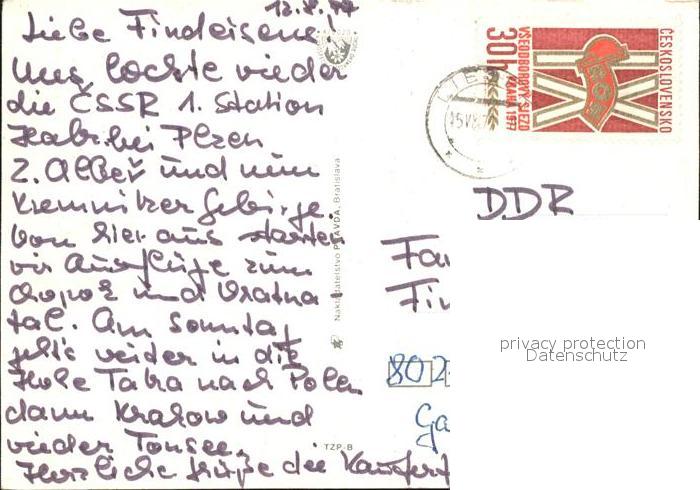 12.8.77
Liebe Findeisens!
Uns lockte wieder
die ČSSR 1. Station
Habr. bei Plzen
2. Albeř und nun
Kremnitzer Gebirge.
Von hier aus starten
wir Ausflüge zum
Chopok und Vratna
tal. Am Sonntag
geht's weiter in die
Hohe Tatra nach Polen
dann Krakow und
wieder
Herzliche Grüße die
Nakladatelstvo PRAVDA, Bratislava
TZP-B
ČESKOSLOVENSKO
IX
ROH
VŠEODBOROVÝ SJEZD
PRAHA 1977
30h
DDR
Fa
Fi
802
Ga
privacy protection
Datenschutz